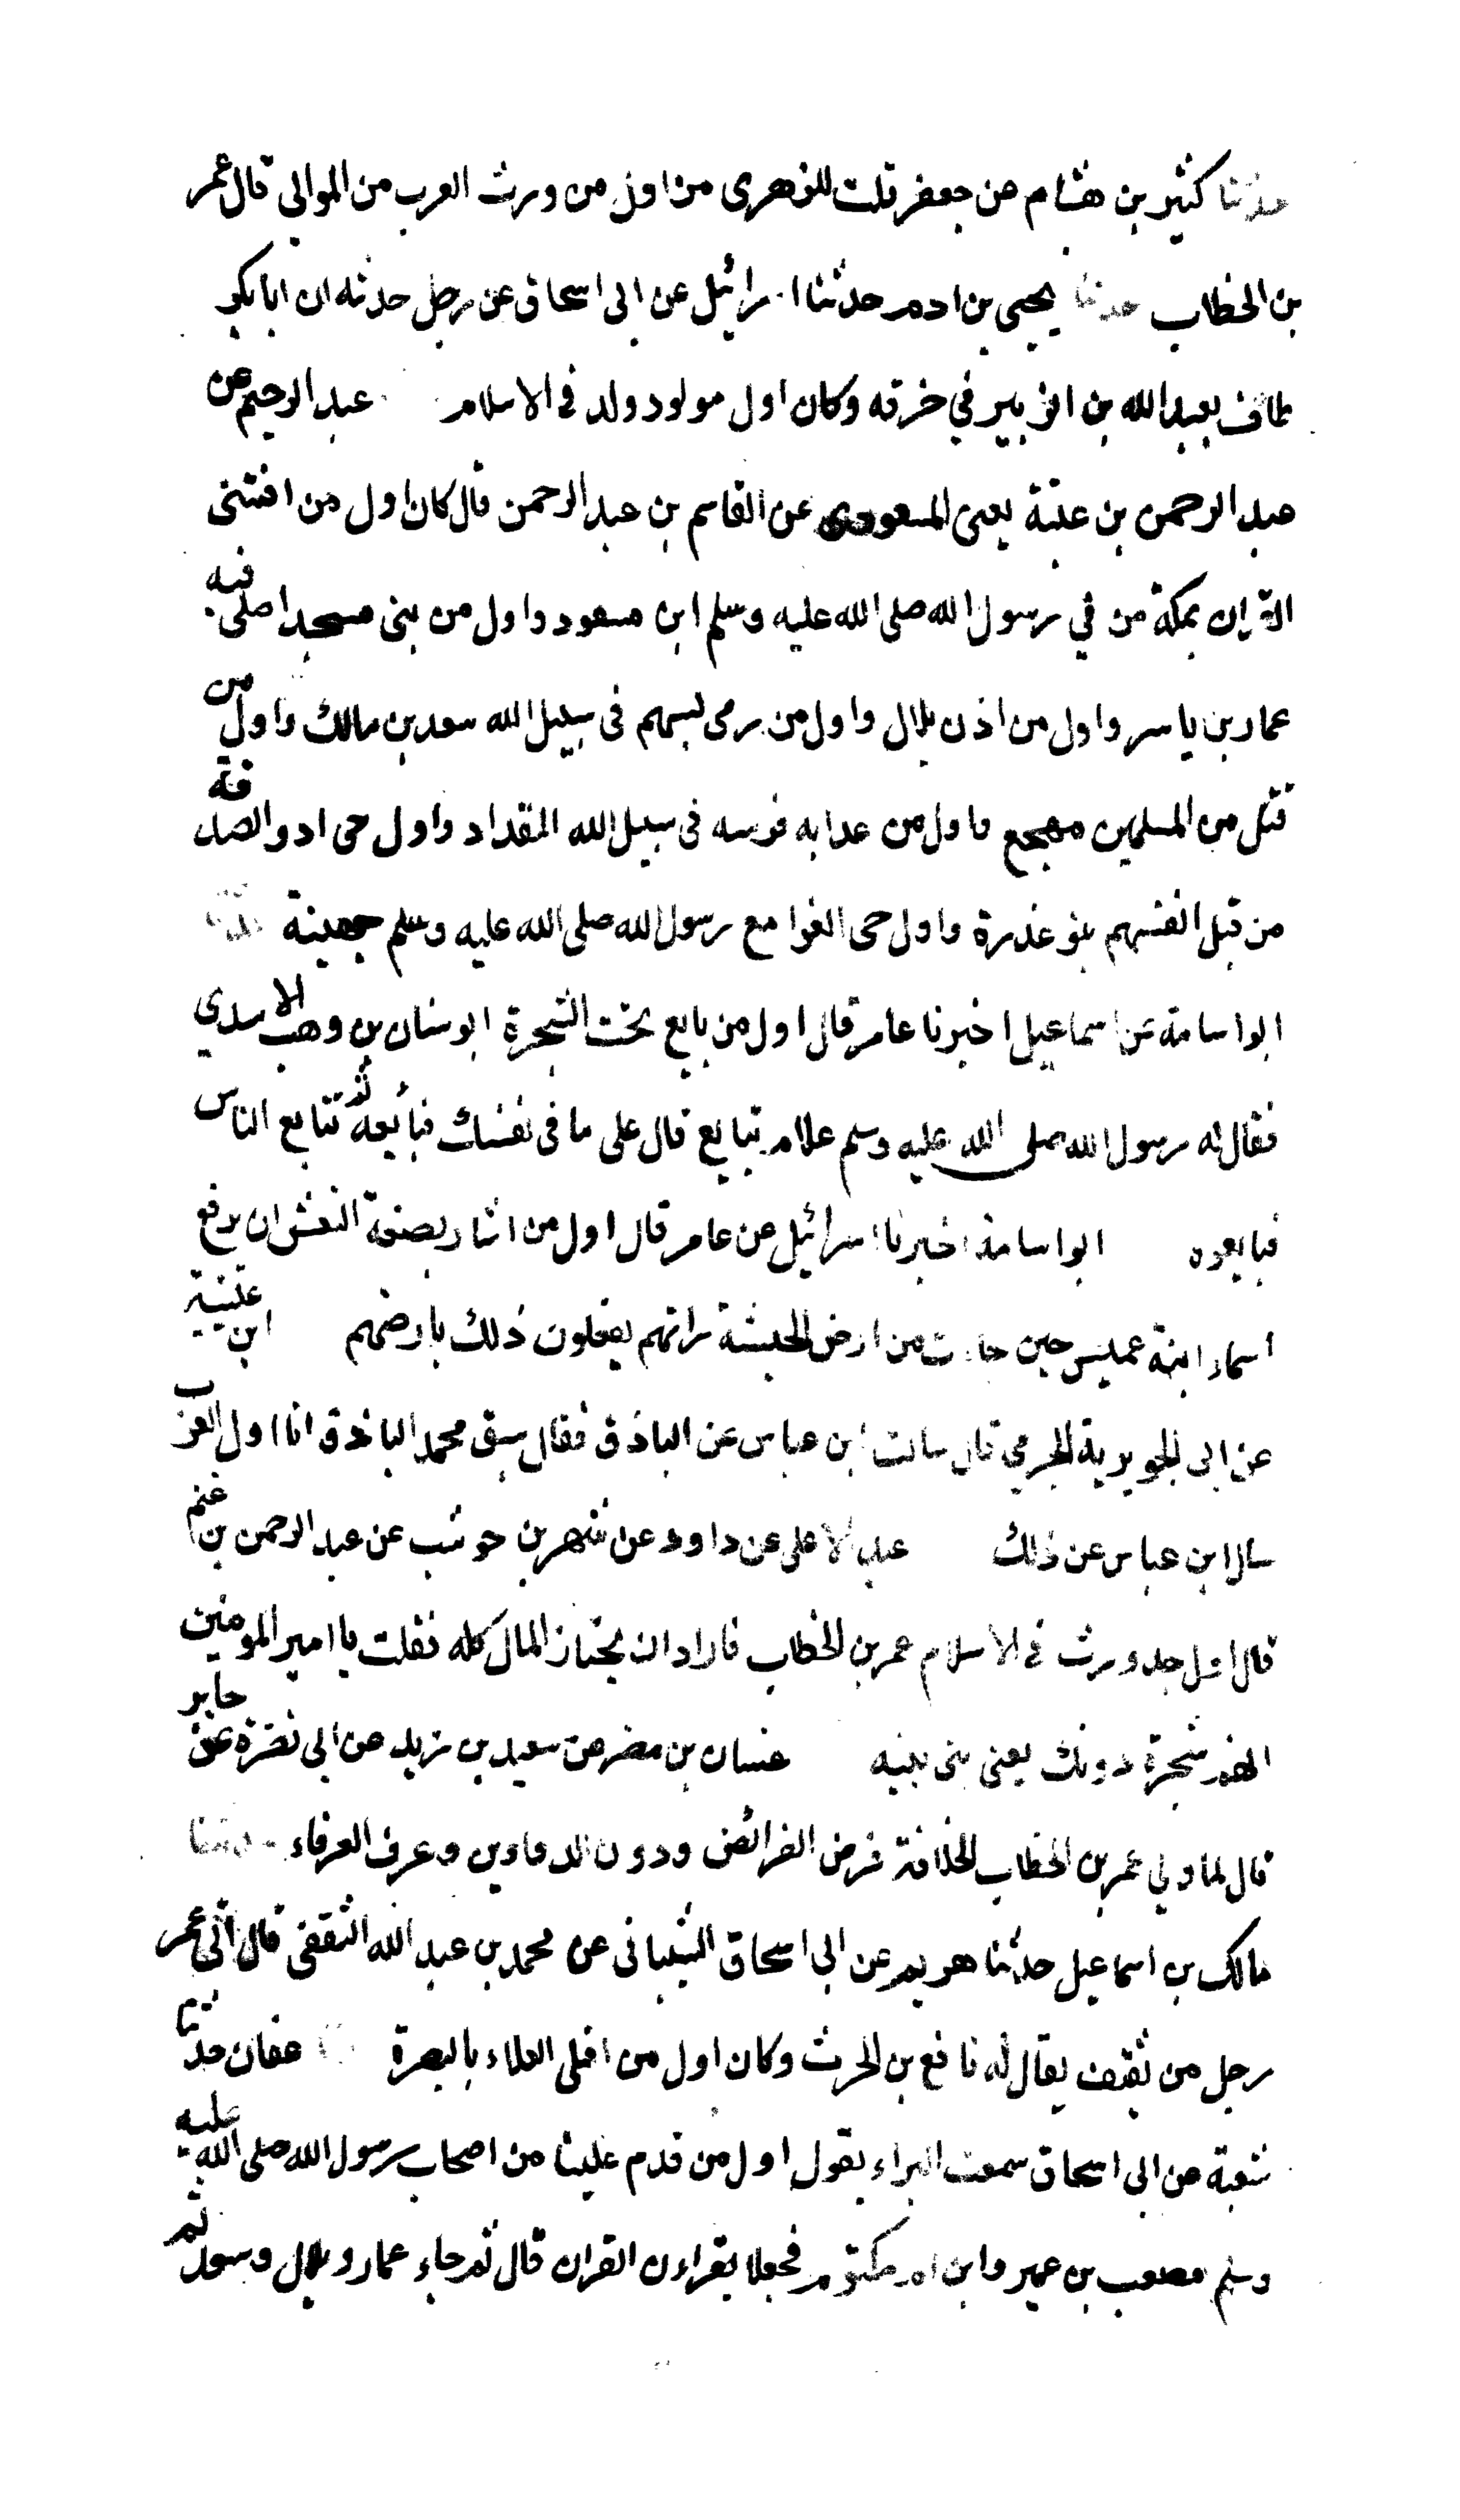 حدثنا كثير بن هشام عن جعفر قلت للزهري من اول من ورث العرب من الموالي قال عمر
بن الخطاب حدثنا يحيى بن ادم حدثنا اسرائيل عن ابى اسحاق عن رجل حدثه ان ابا بكر
طاف بعبد الله بن الزبير في خرقه وكان اول مولود ولد فى الاسلام عبد الرحيم عن
عبد الرحمن بن عتبة يعنى المسعودى عن القاسم بن عبد الرحمن قال كان اول من افشى
القران بمكة من في رسول الله صلى الله عليه وسلم ابن مسعود واول من بنى مسجدا صلى فيه
عمار بن ياسر واول من اذن بلال واول من رمى بسهم فى سبيل الله سعد بن مالك واول من
قتل من المسلمين مهجع واول من عدا به فرسه فى سبيل الله المقداد واول حى ادوا الصدقة
من قبل انفسهم بنو عذرة واول حى الفوا مع رسول الله صلى الله عليه وسلم جهينة حدثنا
ابو اسامة عن اسماعيل اخبرنا عامر قال اول من بايع تحت الشجرة ابو سنان بن وهب الاسدي
فقال له رسول الله صلى الله عليه وسلم علام تبايع قال على ما فى نفسك فبايعه ثم تتابع الناس
فبايعوه ابو اسامة اخبرنا اسرائيل عن عامر قال اول من اشار بصنعة النعش ان يرفع
اسماء ابنة عميس حين جاءت من ارض الحبشة راتهم يفعلون ذلك بارضهم ابن عيينة
عن ابى الجويرية الجرمي قال سالت ابن عباس عن الباذق فقال سبق محمد الباذق انا اول العرب
سال ابن عباس عن ذلك عبد الاعلى عن داود عن شهر بن حوشب عن عبد الرحمن بن غنم
قال اول جد ورث فى الاسلام عمر بن الخطاب فاراد ان يحتاز المال كله فقلت يا امير المومنين
انهم شجرة دونك يعنى بنى بنيه غسان بن مضر عن سعيد بن يزيد عن ابى نضرة عن جابر
قال لما ولي عمر بن الخطاب الخلافة فرض الفرائض ودون الدواوين وعرف العرفاء حدثنا
مالك بن اسماعيل حدثنا هريم عن ابى اسحاق الشيبانى عن محمد بن عبد الله الثقفى قال اتى عمر
رجل من ثقيف يقال له نافع بن الحرث وكان اول من افلى الفلاء بالبصرة عفان حدثنا
شعبة عن ابى اسحاق سمعت البراء يقول اول من قدم علينا من اصحاب رسول الله صلى الله عليه
وسلم مصعب بن عمير وابن ام مكتوم فجعلا يقراءن القران قال ثم جاء عمار وبلال وسعد ثم